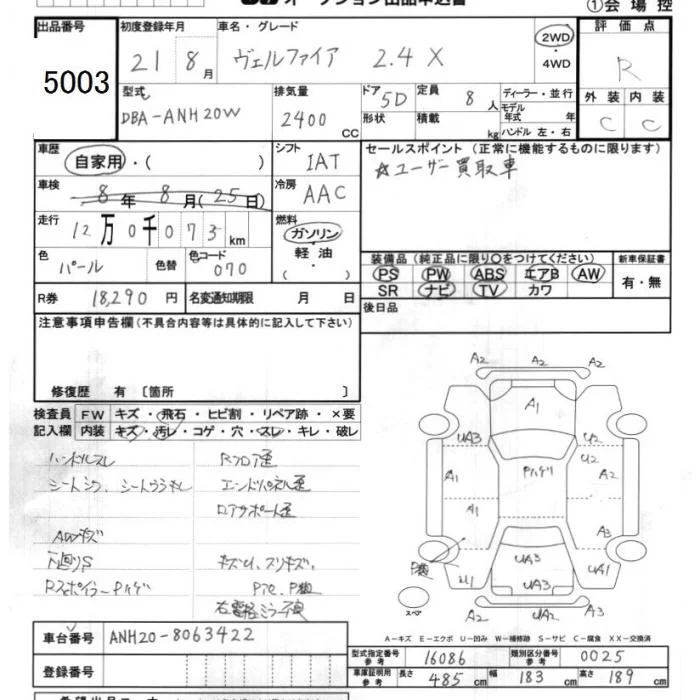 オークション出品申込書 ①会場控
出品番号 初度登録年月 車名・グレード 評価点
5003 21 8月 ヴェルファイア 2.4 X 2WD ・4WD R
型式 排気量 ドア 定員 ディーラー・並行 外装 内装
DBA-ANH20W 2400 CC 5D 8人 モデル年式 年 C C
形状 積載 kg ハンドル 左・右
車歴 自家用・( ) シフト IAT セールスポイント (正常に機能するものに限ります)
☆ユーザー買取車
車検 8年 8月(25日) 冷房 AAC
走行 12万0千073 km 燃料 ガソリン
軽油
・( )
色 パール 色替 色コード 070
装備品 (純正品に限り○をつけてください) 新車保証書
PS PW ABS エアB AW 有・無
SR ナビ TV カワ
R券 18,290 円 名変通知期限 月 日 後日品
注意事項申告欄 (不具合内容等は具体的に記入して下さい)
修復歴 有 〔箇所 〕
検査員 FW キズ・飛石・ヒビ割・リペア跡・×要
記入欄 内装 キズ・汚レ・コゲ・穴・スレ・キレ・破レ
ハンドルスレ Rフロア歪
シートシワ、 エンドパネル歪
リアサポート歪
AWキズ
下廻りS キズU、スリキズ、
Rスポイラー
A2 A2 A2
A1
UA3 U2
U2
A1
A1 A3
U1 UA3 UA1
UA3
A2 UA2 A2
スペア
A-キズ E-エクボ U-凹み W-補修跡 S-サビ C-腐食 XX-交換済
車台番号 ANH20-8063422
登録番号
型式指定番号 参考 16086 類別区分番号 参考 0025
車庫証明用 参考 長さ 485 cm 幅 183 cm 高さ 189 cm